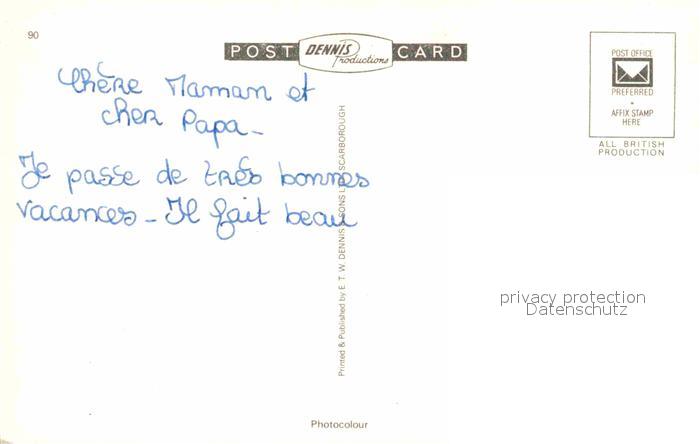 90
POST DENNIS Productions CARD
POST OFFICE
PREFERRED
AFFIX STAMP
HERE
ALL BRITISH
PRODUCTION
Chère Maman et
cher Papa_
Je passe de très bonnes
vacances_ Il fait beau
Printed & Published by E. T. W. DENNIS & SONS LTD., SCARBOROUGH
privacy protection
Datenschutz
Photocolour